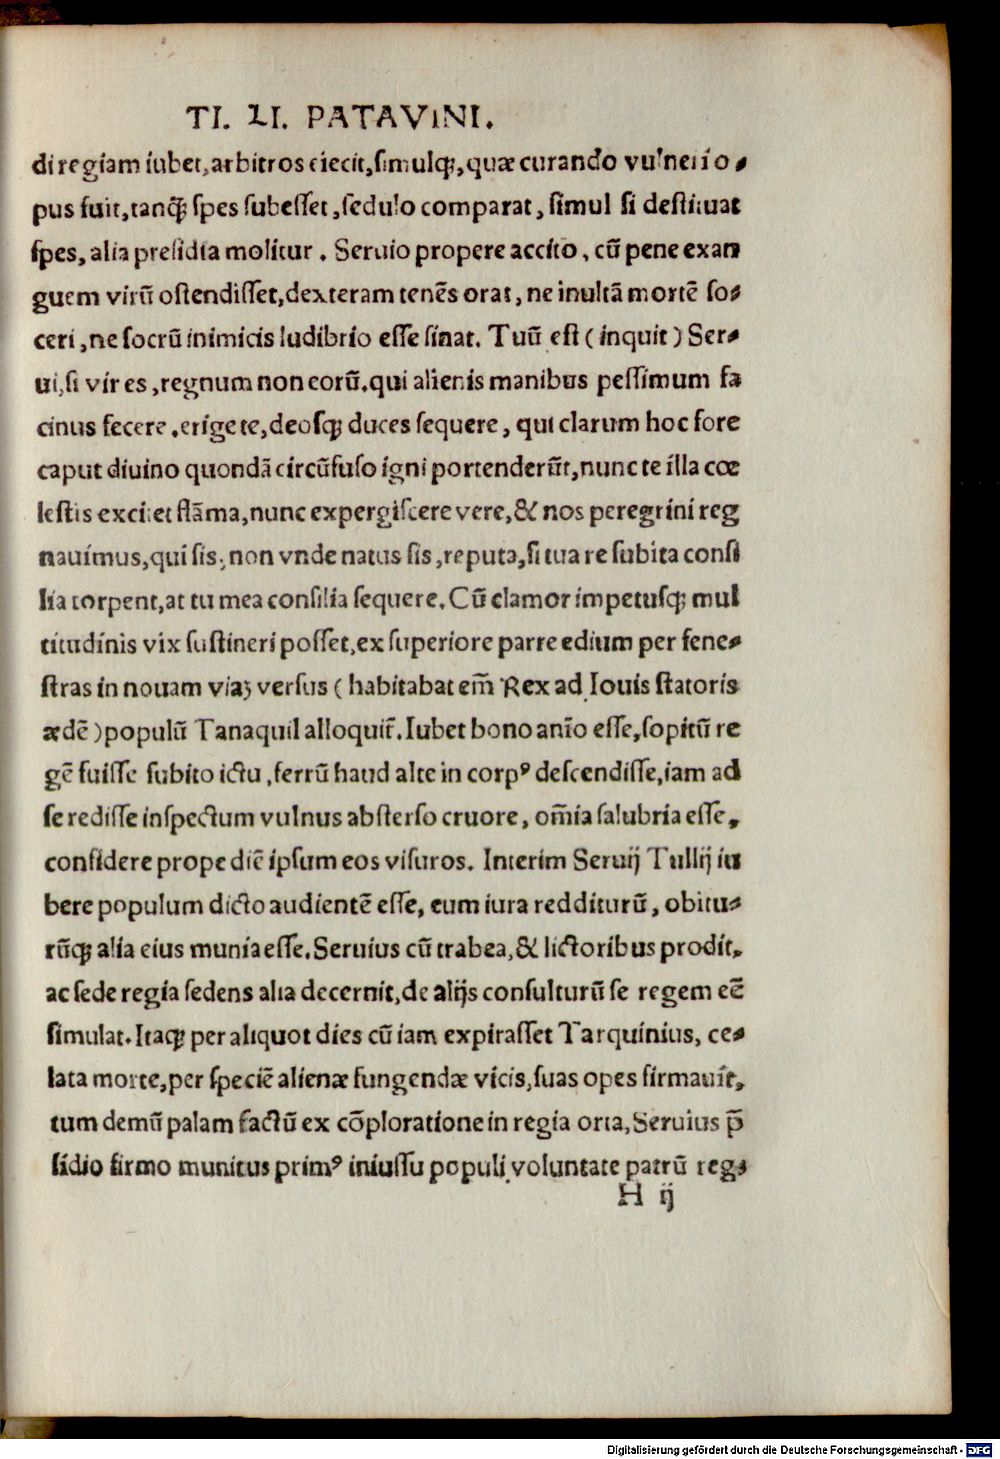 TI. LI. PATAVINI.
di regiam iubet, arbitros eiecit, simulq;, quæ curando vulneri o⸗
pus fuit, tanq̃; spes subesset, sedulo comparat, simul si destituat
spes, alia presidia molitur. Seruio propere accito, cũ pene exan
guem virũ ostendisset, dexteram tenẽs orat, ne inultã mortẽ so⸗
ceri, ne socrũ inimicis ludibrio esse sinat. Tuũ est (inquit) Ser⸗
ui, si vir es, regnum non eorũ, qui alienis manibus pessimum fa
cinus fecere. erige te, deosq; duces sequere, qui clarum hoc fore
caput diuino quondã circũfuso igni portenderũt, nunc te illa cœ
lestis excitet flãma, nunc expergiscere vere, & nos peregrini reg
nauimus, qui sis, non vnde natus sis, reputa, si tua re subita consi
lia torpent, at tu mea consilia sequere. Cũ clamor impetusq; mul
titudinis vix sustineri posset, ex superiore parre edium per fene⸗
stras in nouam viaꝫ versus (habitabat em̃ Rex ad Iouis statoris
ædẽ) populũ Tanaquil alloquit̃. Iubet bono anĩo esse, sopitũ re
gẽ fuisse subito ictu, ferrũ haud alte in corpꝰ descendisse, iam ad
se redisse inspectum vulnus absterso cruore, om̃ia salubria esse,
considere prope diẽ ipsum eos visuros. Interim Seruij Tullij iu
bere populum dicto audientẽ esse, eum iura redditurũ, obitu⸗
rũq; alia eius munia esse. Seruius cũ trabea, & lictoribus prodit,
ac sede regia sedens alia decernit, de alijs consulturũ se regem eẽ
simulat. Itaq; per aliquot dies cũ iam expirasset Tarquinius, ce⸗
lata morte, per speciẽ alienæ fungendæ vicis, suas opes firmauit,
tum demũ palam factũ ex cõploratione in regia orta, Seruius p̃
sidio firmo munitus primꝰ iniussu populi voluntate patrũ reg⸗
H ij
Digitalisierung gefördert durch die Deutsche Forschungsgemeinschaft - DFG